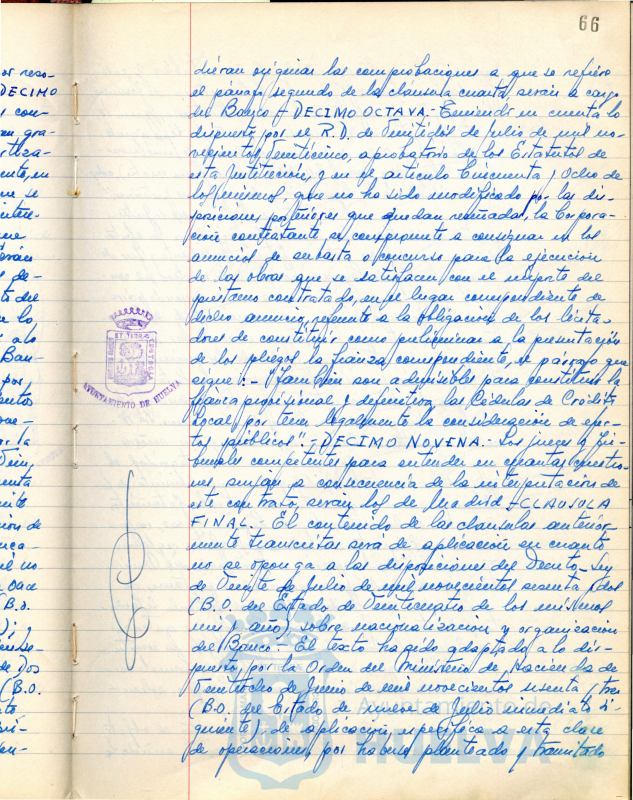 66
dieran originar las comprobaciones a que se refiere
el párrafo segundo de la clausula cuarta serán a cargo
del Banco.- DECIMO OCTAVA.- Teniendo en cuenta lo
dispuesto por el R.D. de Veintidós de julio de mil no-
vecientos Veinticinco, aprobatorio de los Estatutos de
esta Institución, y en el artículo Cincuenta y Ocho de
los mismos, que no ha sido modificado por las dis-
posiciones posteriores que quedan reseñadas, la Corpora-
ción contratante, se compromete a consignar en los
anuncios de subasta o concurso para la ejecución
de las obras que se satisfacen con el importe del
préstamo contratado, en el lugar correspondiente de
dicho anuncio, referente a la obligación de los licita-
dores de constituir como preliminar a la presentación
de los pliegos la fianza correspondiente, el párrafo que
sigue:.- "También son admisibles para constituir la
fianza provisional y definitiva, las Cédulas de Crédito
Local por tener legalmente la consideración de efec-
tos públicos".- DECIMO NOVENA.- Los jueces y Tri-
bunales competentes para entender en cuantas cuestio-
nes, surjan a consecuencia de la interpretación de
este contrato, serán los de Madrid.- CLAUSULA
FINAL.- El contenido de las clausulas anterior-
mente transcritas será de aplicación en cuanto
no se oponga a las disposiciones del Decreto-Ley
de Veinte de Julio de mil novecientos sesenta y dos
(B.O. del Estado de Veinticuatro de los mismos
mes y año), sobre nacionalización y organización
del Banco.- El texto ha sido adaptado a lo dis-
puesto, por la Orden del Ministerio de Hacienda de
Veintiocho de Junio de mil novecientos sesenta y tres
(B.O. del Estado de nueve de Julio inmediato si-
guiente), de aplicación específica a esta clase
de operaciones, por haberse planteado y tramitado
AYUNTAMIENTO DE HUELVA
Ayuntamiento de
HUELVA
or reso-
DECIMO
s con-